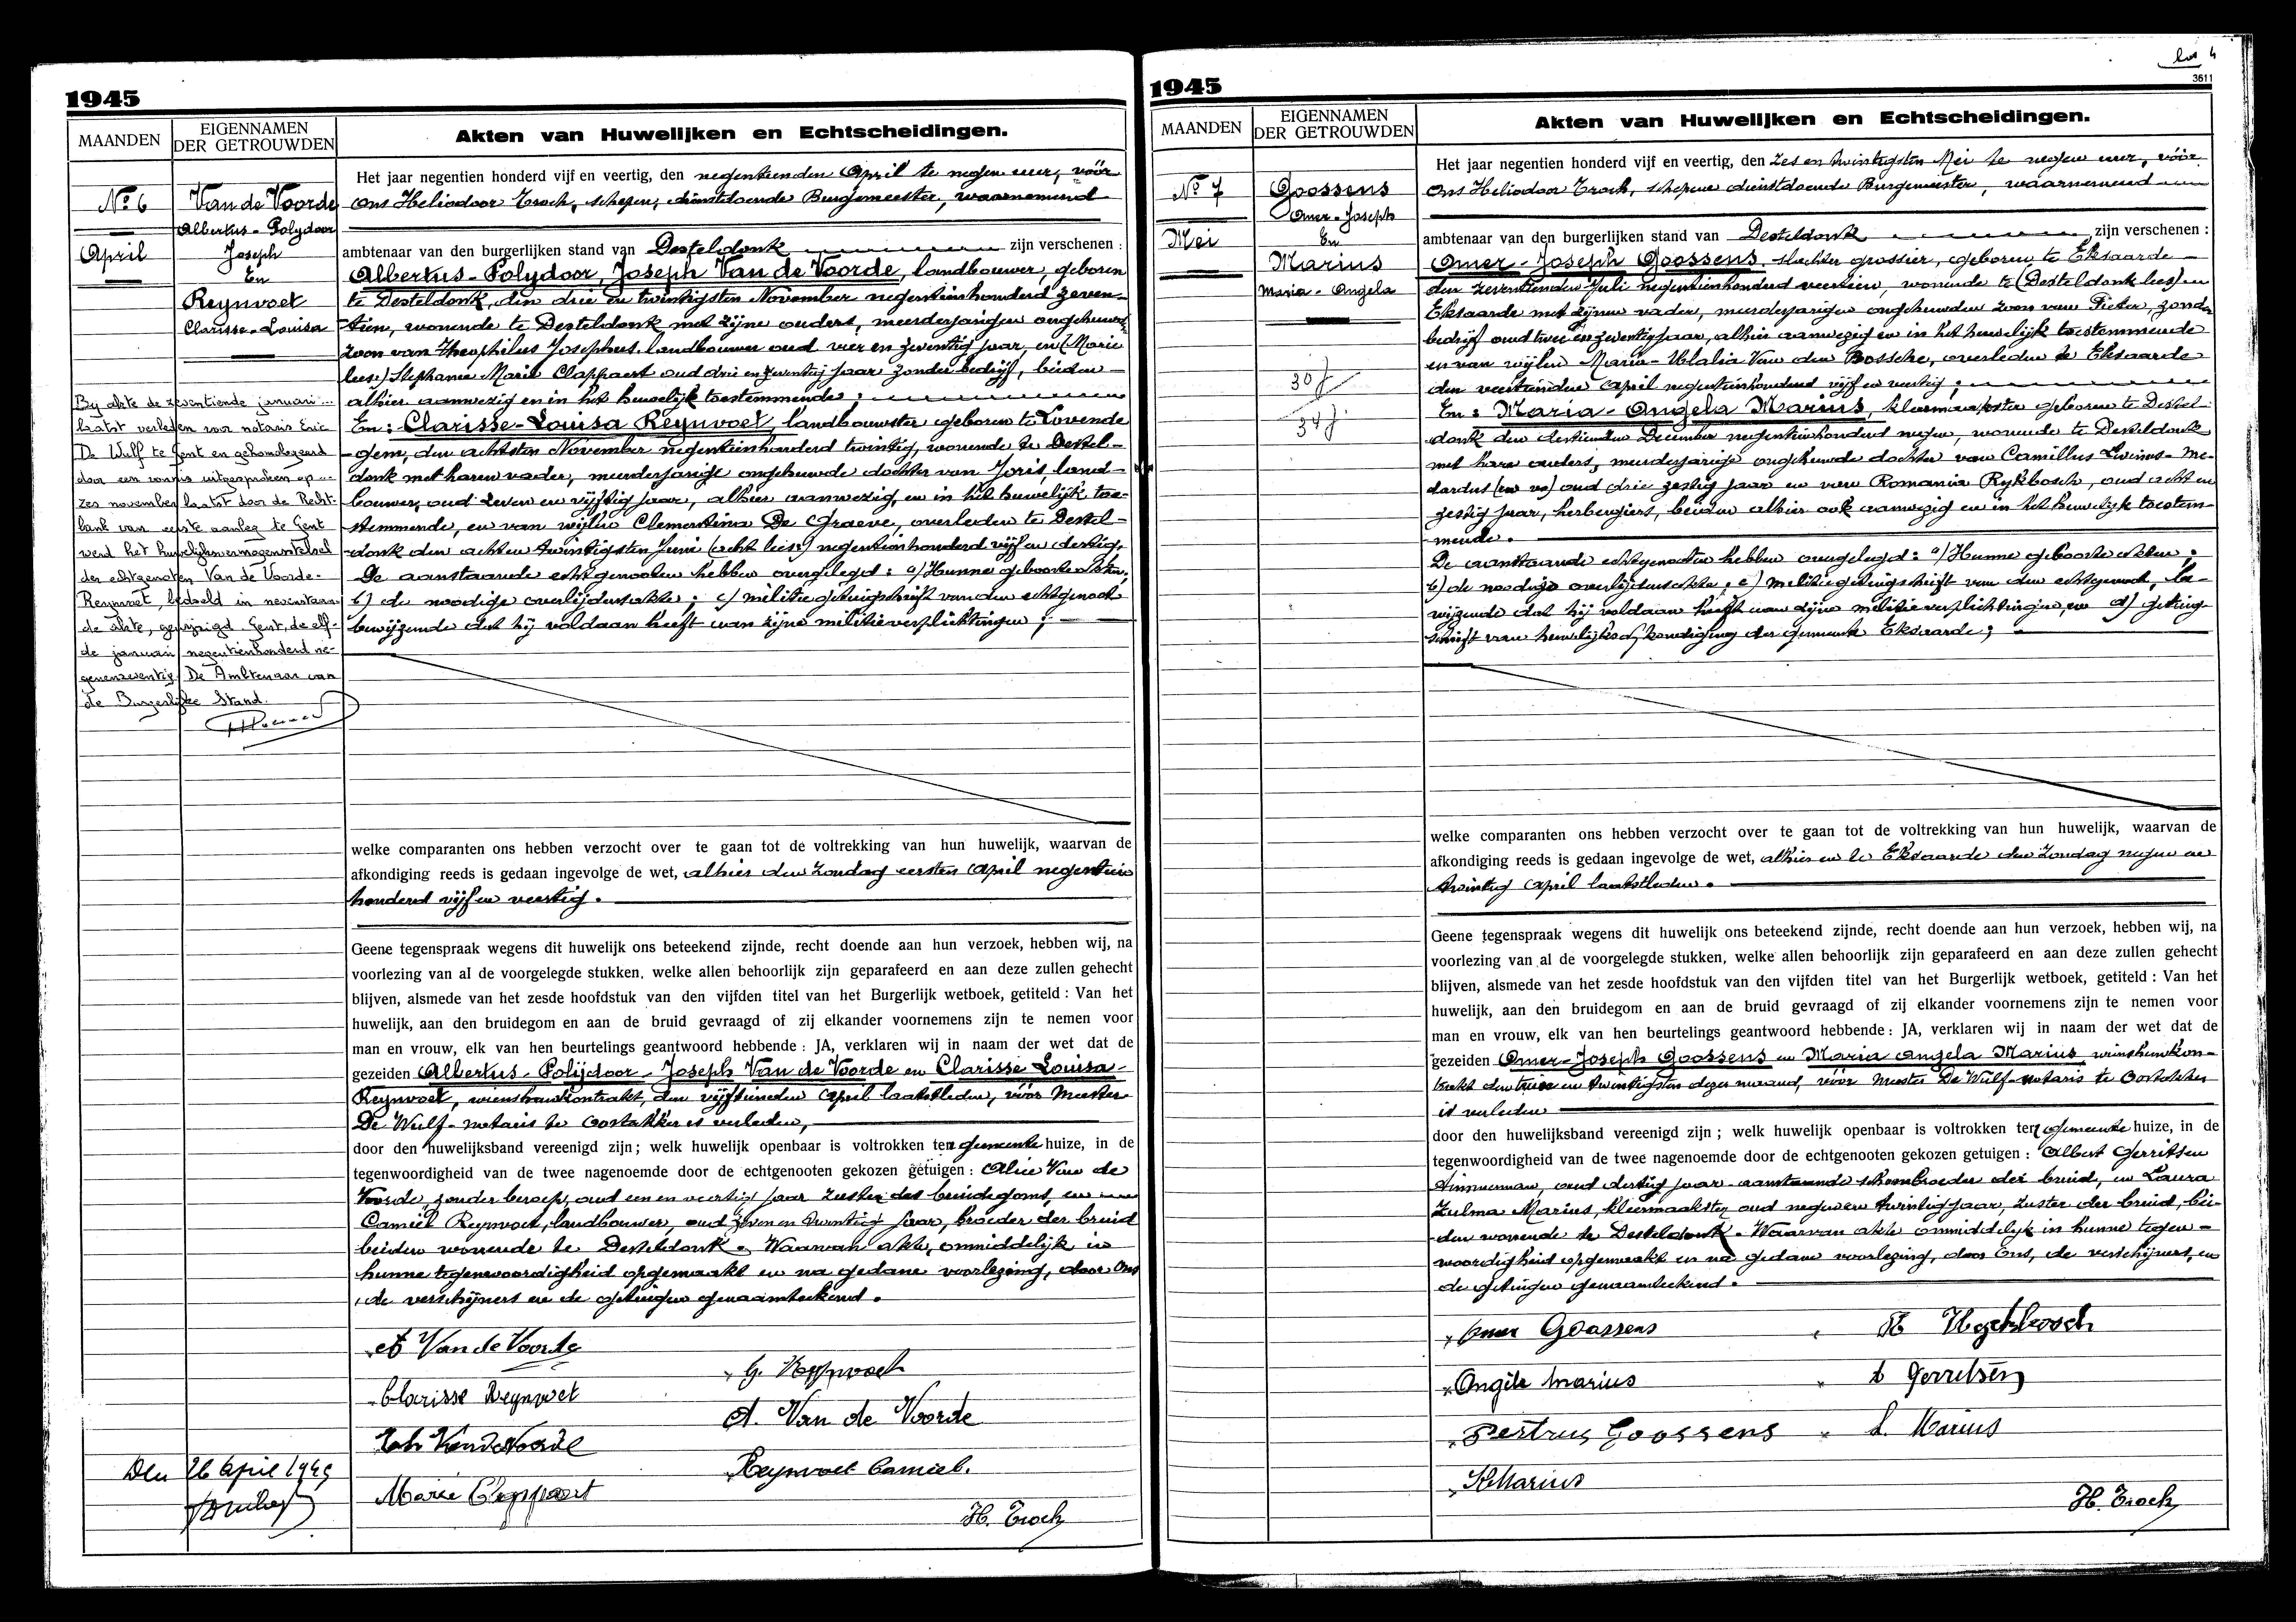 1945
MAANDEN
EIGENNAMEN
DER GETROUWDEN
Akten van Huwelijken en Echtscheidingen.
No 6
April
Van de Voorde
Albertus-Polydoor
Joseph
En
Reynvoet
Clarisse-Louisa
By akte de zeventiende januari
laatst verleden voor notaris Eric
De Wulf te Gent en gehomologeerd
door een vonnis uitgesproken op
zes november laatst door de Recht-
bank van eerste aanleg te Gent
werd het huwelijksvermogensstelsel
der echtgenoten Van de Voorde-
Reynvoet, bedoeld in nevenstaan-
de akte, gewijzigd. Gent, de elf-
de januari negentienhonderd ne-
genenzeventig. De Ambtenaar van
de Burgerlijke Stand.
Den 26 April 1945
Het jaar negentien honderd vijf en veertig, den negentienden April te negen uur, vóór
Ons Heliodoor Troch, schepen, dienstdoende Burgemeester, waarnemend
ambtenaar van den burgerlijken stand van Desteldonk zijn verschenen :
Albertus-Polydoor, Joseph Van de Voorde, landbouwer, geboren
te Desteldonk, den drie en twintigsten November negentienhonderd zeven-
tien, wonende te Desteldonk met zijne ouders, meerderjarigen ongehuwden
zoon van Theophilus Josephus, landbouwer oud vier en zeventig jaar, en (Marie
lees:) Stephanie Marie Clappaert oud drie en zeventig jaar zonder bedrijf, beiden
alhier aanwezig en in het huwelijk toestemmende ;
En : Clarisse-Louisa Reynvoet, landbouwster geboren te Lovende
gem, den achtsten November negentienhonderd twintig, wonende te Destel-
donk met haren vader, meerderjarige ongehuwde dochter van Joris, land-
bouwer, oud zeven en vijftig jaar, alhier aanwezig, en in het huwelijk toe-
stemmende, en van wijlen Clementina De Graeve, overleden te Destel-
donk den achten twintigsten Juni (acht lees:) negentienhonderd vijf en dertig.
De aanstaande echtgenooten hebben overgelegd : a) Hunne geboorte akten;
b) de noodige overlijdensakte ; c) militiegetuigschrift van den echtgenoot
bewijzende dat hij voldaan heeft aan zijne militieverplichtingen ;
welke comparanten ons hebben verzocht over te gaan tot de voltrekking van hun huwelijk, waarvan de
afkondiging reeds is gedaan ingevolge de wet, alhier den zondag eersten April negentien
honderd vijf en veertig.
Geene tegenspraak wegens dit huwelijk ons beteekend zijnde, recht doende aan hun verzoek, hebben wij, na
voorlezing van al de voorgelegde stukken, welke allen behoorlijk zijn geparafeerd en aan deze zullen gehecht
blijven, alsmede van het zesde hoofdstuk van den vijfden titel van het Burgerlijk wetboek, getiteld : Van het
huwelijk, aan den bruidegom en aan de bruid gevraagd of zij elkander voornemens zijn te nemen voor
man en vrouw, elk van hen beurtelings geantwoord hebbende : JA, verklaren wij in naam der wet dat de
gezeiden Albertus-Polijdoor-Joseph Van de Voorde en Clarisse Louisa
Reynvoet, wienshuwkontrakt, den vijftienden April laatstleden, vóór Meester
De Wulf-notaris te Oostakker is verleden,
door den huwelijksband vereenigd zijn ; welk huwelijk openbaar is voltrokken ten gemeente huize, in de
tegenwoordigheid van de twee nagenoemde door de echtgenooten gekozen getuigen : Alice Van de
Voorde, zonder beroep, oud een en veertig jaar zuster des bruidegoms, en
Camiel Reynvoet, landbouwer, oud zeven en twintig jaar, broeder der bruid
beiden wonende te Desteldonk. Waarvan akte, onmiddelijk in
hunne tegenwoordigheid opgemaakt en na gedane voorlezing, door Ons
, de verschijners en de getuigen genaamteekend.
A Van de Voorde
G. Reynvoet
Clarisse Reynvoet
A. Van de Voorde
Van de Voorde
Reynvoet Camiel.
Marie Clappaert
H. Troch
3611
1945
MAANDEN
EIGENNAMEN
DER GETROUWDEN
Akten van Huwelijken en Echtscheidingen.
No 7
Mei
Goossens
Omer-Joseph
En
Marius
Maria-Angela
30 j
34 j
Het jaar negentien honderd vijf en veertig, den zes en twintigsten Mei te negen uur, vóór
Ons Heliodoor Troch, schepene dienstdoende Burgemeester, waarnemend
ambtenaar van den burgerlijken stand van Desteldonk zijn verschenen :
Omer-Joseph Goossens, slachter grossier, geboren te Eksaarde
den zeventienden Juli negentienhonderd veertien, wonende te (Desteldonk lees) en
Eksaarde met zijnen vader, meerderjarigen ongehuwden zoon van Pieter, zonder
bedrijf oud twee en zeventig jaar, alhier aanwezig en in het huwelijk toestemmende
en van wijlen Maria-Ulalia Van den Bossche, overleden te Eksaarde
den veertienden April negentienhonderd vijf en veertig ;
En : Maria-Angela Marius, kleermaakster geboren te Destel-
donk den dertienden December negentienhonderd negen, wonende te Desteldonk
met hare ouders, meerderjarige ongehuwde dochter van Camillus Livinus-Me-
dardus (en vo) oud drie zestig jaar en van Romania Rijkbosch, oud acht en
zestig jaar, herbergiers, beiden alhier ook aanwezig en in het huwelijk toestem-
mende.
De aanstaande echtgenooten hebben overgelegd : a) Hunne geboorte akten ;
b) de noodige overlijdensakte ; c) militiegetuigschrift van den echtgenoot, be-
wijzende dat hij voldaan heeft aan zijne militieverplichtingen, en d) getuig-
schrift van huwelijksafkondiging der gemeente Eksaarde ;
welke comparanten ons hebben verzocht over te gaan tot de voltrekking van hun huwelijk, waarvan de
afkondiging reeds is gedaan ingevolge de wet, alhier en te Eksaarde den Zondag negen en
twintig April laatstleden.
Geene tegenspraak wegens dit huwelijk ons beteekend zijnde, recht doende aan hun verzoek, hebben wij, na
voorlezing van al de voorgelegde stukken, welke allen behoorlijk zijn geparafeerd en aan deze zullen gehecht
blijven, alsmede van het zesde hoofdstuk van den vijfden titel van het Burgerlijk wetboek, getiteld : Van het
huwelijk, aan den bruidegom en aan de bruid gevraagd of zij elkander voornemens zijn te nemen voor
man en vrouw, elk van hen beurtelings geantwoord hebbende : JA, verklaren wij in naam der wet dat de
gezeiden Omer-Joseph Goossens en Maria Angela Marius, wienshuwkon-
trakt den twee en twintigsten dezer maand, vóór Meester De Wulf-notaris te Oostakker
is verleden
door den huwelijksband vereenigd zijn ; welk huwelijk openbaar is voltrokken ten gemeente huize, in de
tegenwoordigheid van de twee nagenoemde door de echtgenooten gekozen getuigen : Albert Gerritsen
timmerman, oud dertig jaar aanstaande schoonbroeder der bruid, en Laura
Zulma Marius, kleermaakster oud negen en twintig jaar, zuster der bruid, bei-
den wonende te Desteldonk. Waarvan akte onmiddelijk in hunne tegen-
woordigheid opgemaakt en na gedane voorlezing, door Ons, de verschijners, en
de getuigen genaamteekend.
Omer Goossens
Angèle Marius
A Gerritsen
Pestrus Goossens
L. Marius
Marius
H. Troch